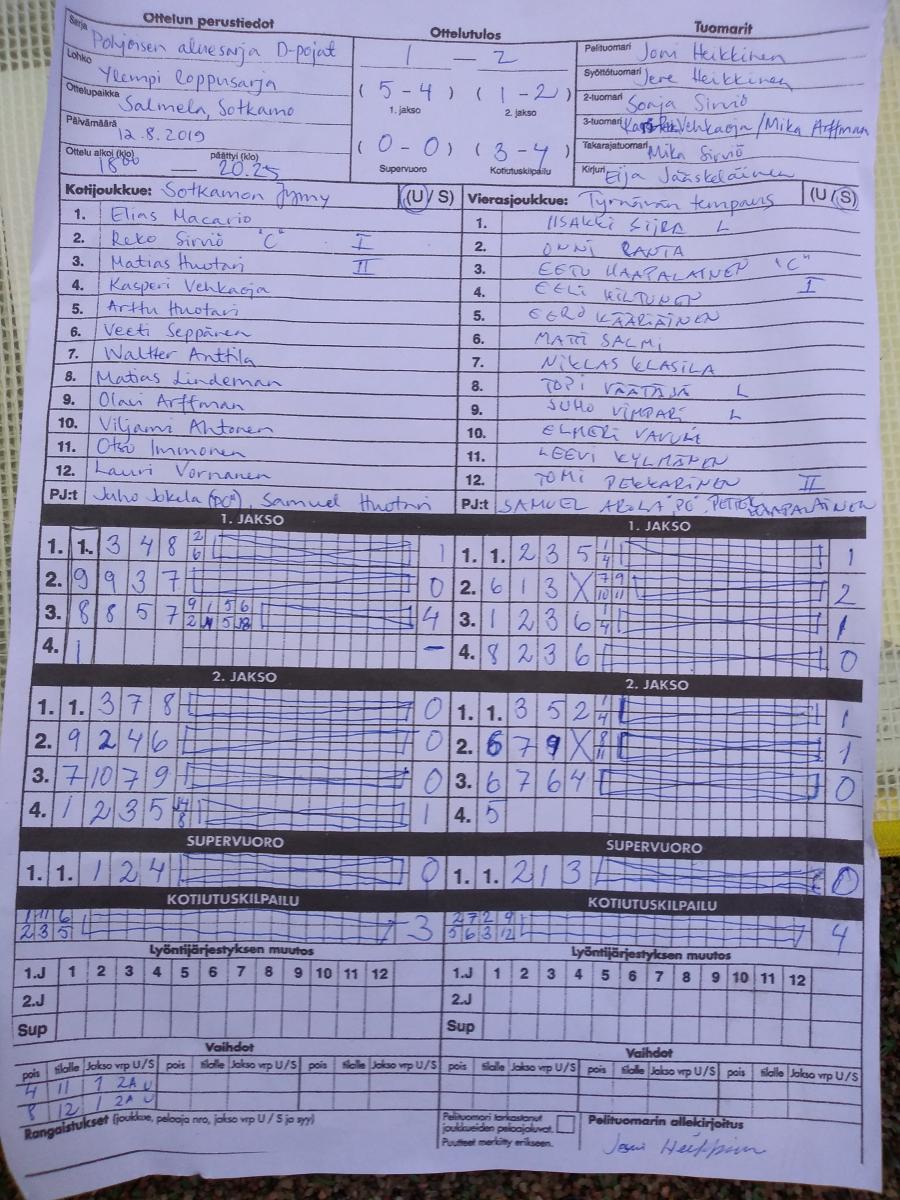 Ottelun perustiedot
Sarja Pohjoisen aluesarja D-pojat
Lohko Ylempi loppusarja
Ottelupaikka Salmela, Sotkamo
Päivämäärä 12.8.2019
Ottelu alkoi (klo) päättyi (klo)
18 00 — 20.25
Ottelutulos
1 — 2
( 5 - 4 ) ( 1 - 2 )
1. jakso 2. jakso
( 0 - 0 ) ( 3 - 4 )
Supervuoro Kotiutuskilpailu
Tuomarit
Pelituomari Joni Heikkinen
Syöttötuomari Jere Heikkinen
2-tuomari Sonja Sirviö
3-tuomari Vehkaoja / Mika Arffman
Takarajatuomari Mika Sirviö
Kirjuri Eija Jääskeläinen
Kotijoukkue: Sotkamon Jymy (U/S)
1. Elias Macario
2. Reko Sirviö "C" I
3. Matias Huotari II
4. Kasperi Vehkaoja
5. Arttu Huotari
6. Veeti Seppänen
7. Waltter Anttila
8. Matias Lindeman
9. Olavi Arffman
10. Viljami Ahtonen
11. Otso Immonen
12. Lauri Vornanen
PJ:t Juho Jokela ("PC"), Samuel Huotari
Vierasjoukkue: Tyrnävän tempaus (U/S)
1. IISAKKI SIIRA L
2. ONNI RANTA
3. EETU HAAPALAINEN "C"
4. EELI KILTUNEN I
5. EERO KÄÄRIÄINEN
6. MATTI SALMI
7. NIKLAS KLASILA
8. TOPI VÄÄTÄJÄ L
9. JUHO VIMPARI L
10. ELMERI
11. LEEVI KYLMÄNEN
12. TOMI PEKKARINEN II
PJ:t SAMUEL AROLA "PC", HAAPALAINEN
1. JAKSO
1. 1. 3 4 8 2 6 1
2. 9 9 3 7 0
3. 8 8 5 7 4
4. 1 –
1. JAKSO
1. 1. 2 3 5 1 4 1
2. 6 1 3 X 7 9 10 11 2
3. 1 2 3 6 1 4 1
4. 8 2 3 6 0
2. JAKSO
1. 1. 3 7 8 0
2. 9 2 4 6 0
3. 7 10 7 9 0
4. 1 2 3 5 1
2. JAKSO
1. 1. 3 5 2 1 4 1
2. 6 7 9 X 8 11 1
3. 6 7 6 4 0
4. 5
SUPERVUORO
1. 1. 1 2 4 0
SUPERVUORO
1. 1. 2 1 3 0
KOTIUTUSKILPAILU
1 11 6
2 3 5 3
KOTIUTUSKILPAILU
2 7 2 9
5 6 3 12 4
Lyöntijärjestyksen muutos
1.J 1 2 3 4 5 6 7 8 9 10 11 12
2.J
Sup
Lyöntijärjestyksen muutos
1.J 1 2 3 4 5 6 7 8 9 10 11 12
2.J
Sup
Vaihdot
pois tilalle Jakso vrp U/S pois tilalle Jakso vrp U/S pois tilalle Jakso vrp U/S
4 11 1 2A U
8 12 1 2A U
Vaihdot
pois tilalle Jakso vrp U/S pois tilalle Jakso vrp U/S pois tilalle Jakso vrp U/S
Rangaistukset (joukkue, pelaaja nro, jakso vrp U / S ja syy)
Pelituomari tarkastanut
joukkueiden pelaajaluvat.
Puutteet merkitty erikseen.
Pelituomarin allekirjoitus
Joni Heikkinen